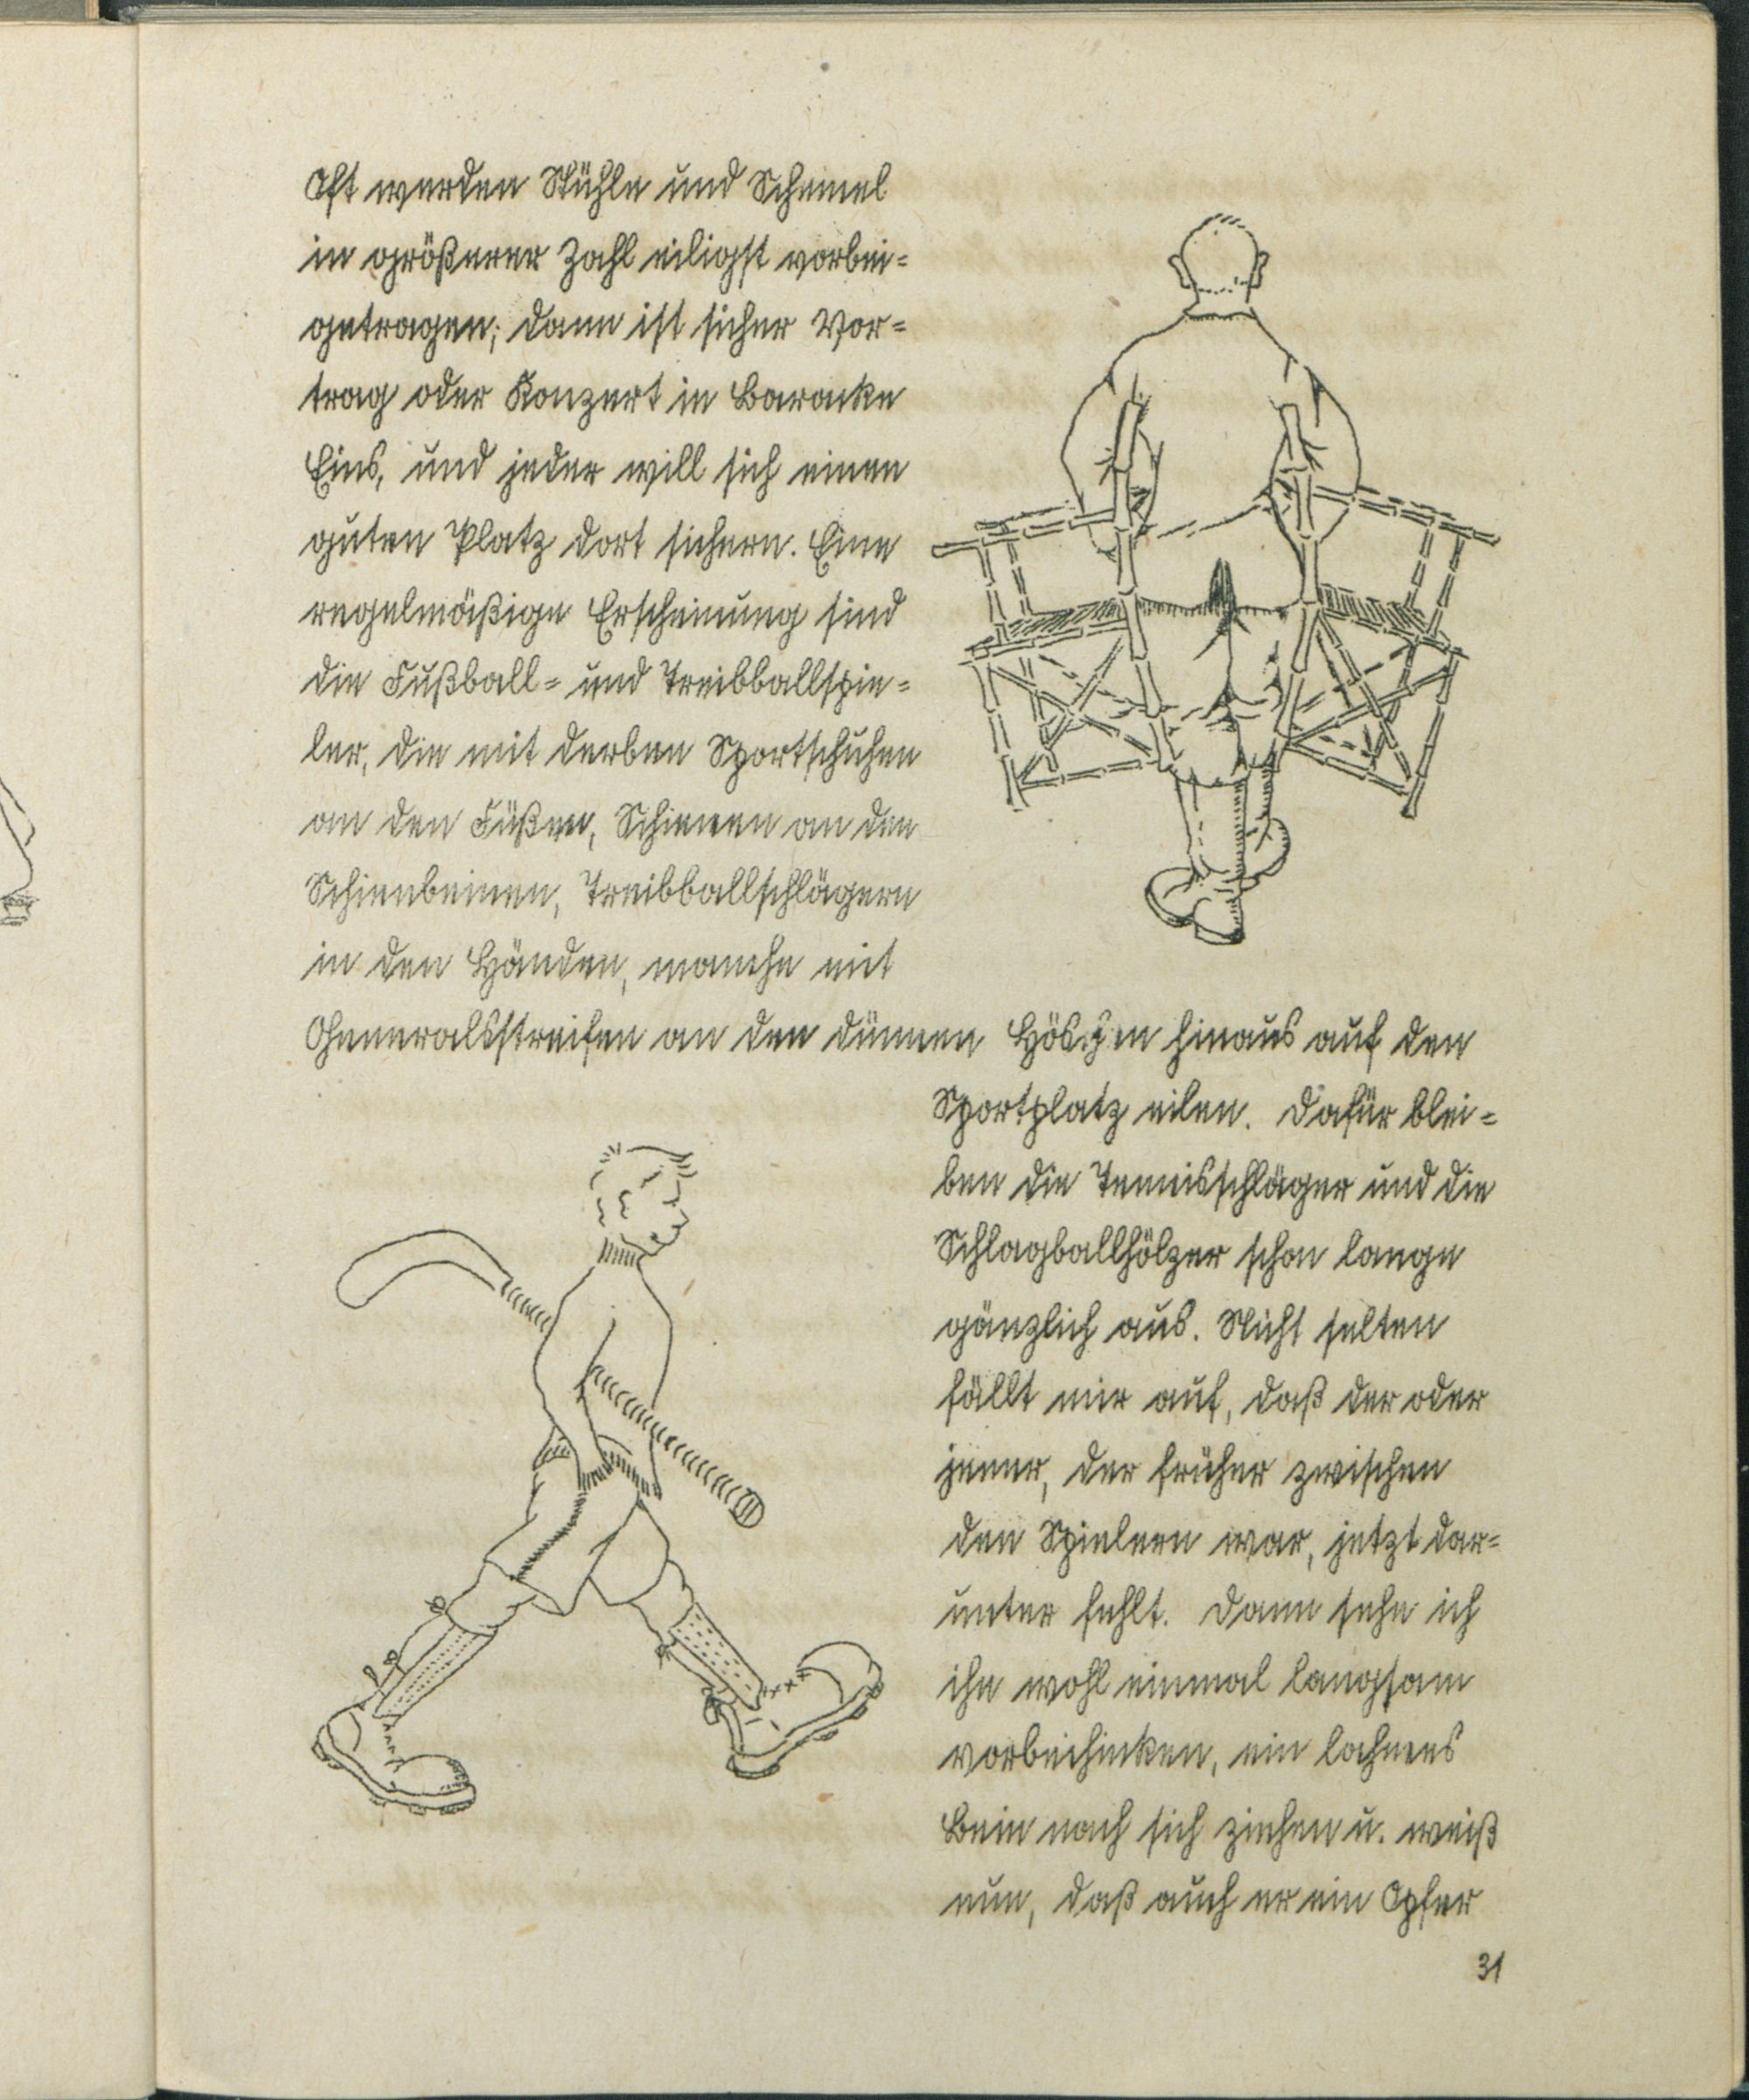 Oft werden Stühle und Schemel
in größerer Zahl eiligst vorbei=
getragen; dann ist sicher Vor=
trag oder Konzert in Baracke
Eins, und jeder will sich einen
guten Platz dort sichern. Eine
regelmäßige Erscheinung sind
die Fußball= und Treibballspie=
ler, die mit derben Sportschuhen
an den Füßen, Schienen an den
Schienbeinen, Treibballschlägern
in den Händen, manche mit
Generalsstreifen an den dünnen Höschen hinaus auf den
Sportplatz eilen. Dafür blei=
ben die Tennisschläger und die
Schlagballhölzer schon lange
gänzlich aus. Nicht selten
fällt mir auf, daß der oder
jener, der früher zwischen
den Spielern war, jetzt dar=
unter fehlt. Dann sehe ich
ihn wohl einmal langsam
vorbeihinken, ein lahmes
Bein nach sich ziehen u. weiß
nun, daß auch er ein Opfer
31